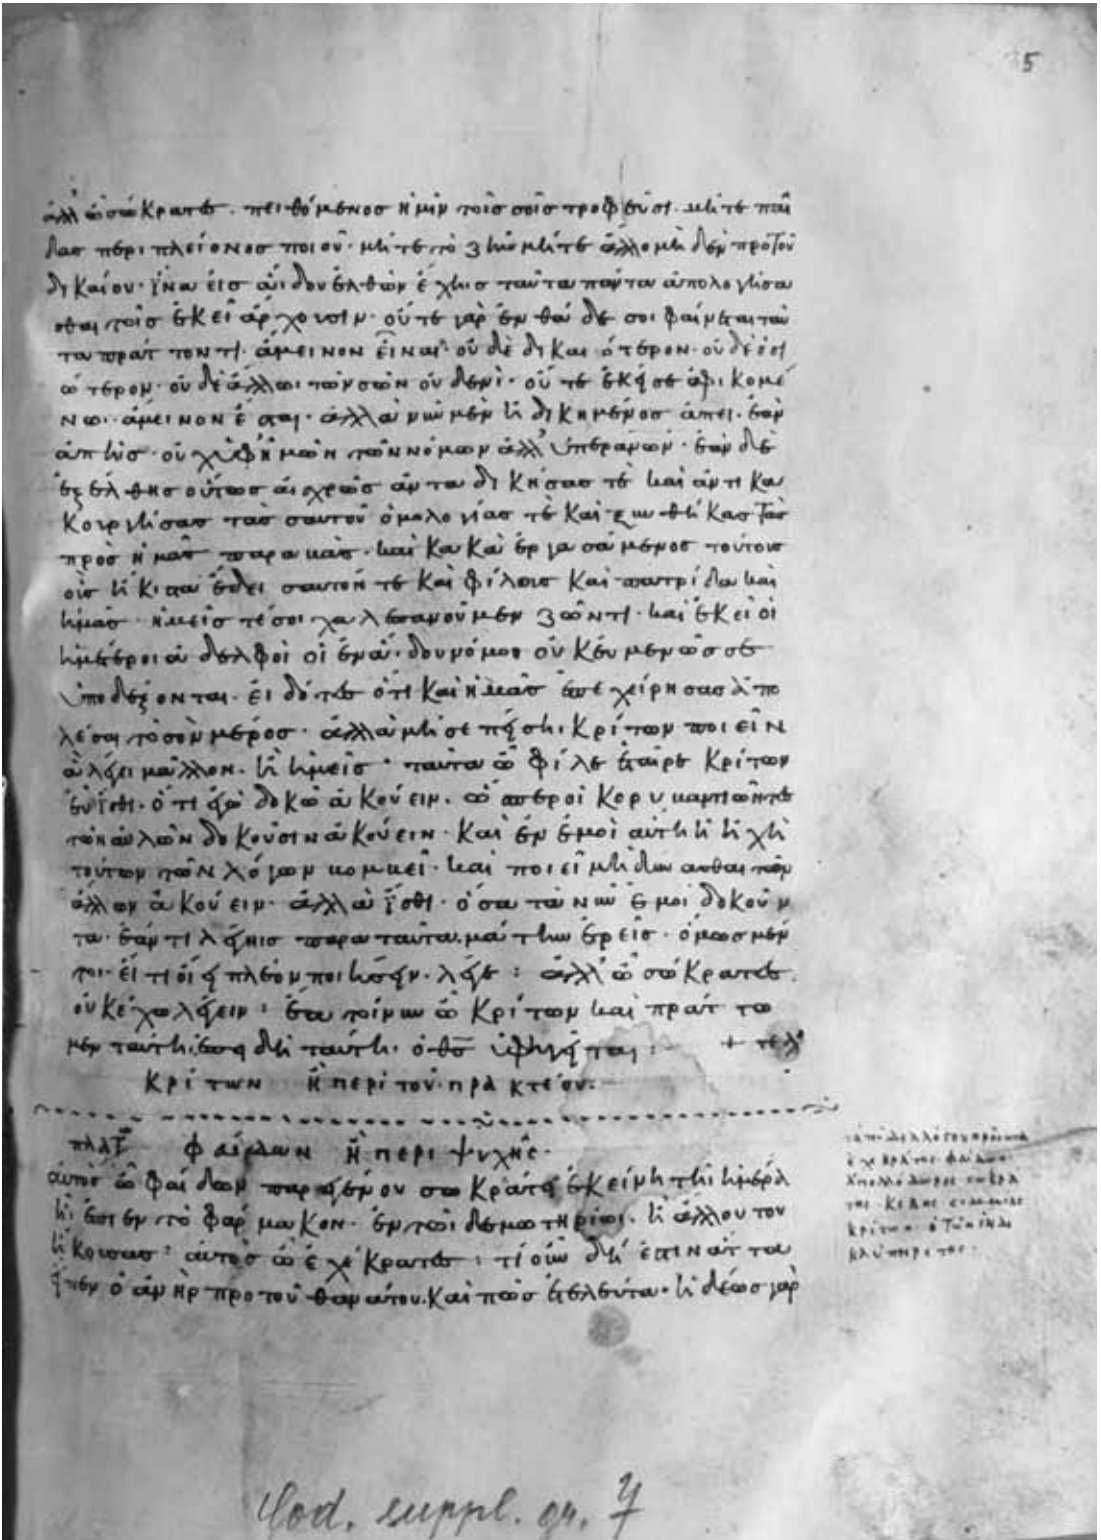 5
ἀλλ' ὦ σώκρατες. πειθόμενος ἡμῖν τοῖς σοῖς τροφεῦσι. μήτε παῖ
δας περὶ πλείονος ποιοῦ· μήτε τὸ ζῆν μήτε ἄλλο μηδὲν πρὸ τοῦ
δικαίου· ἵνα εἰς ἅιδου ἐλθὼν ἔχηις ταῦτα πάντα ἀπολογήσα
σθαι τοῖς ἐκεῖ ἄρχουσιν· οὔτε γὰρ ἐνθάδε σοι φαίνεται ταῦ
τα πράττοντι ἄμεινον εἶναι· οὐδὲ δικαιότερον· οὐδὲ ὁσι
ώτερον· οὐδὲ ἄλλωι τῶν σῶν οὐδενί· οὔτε ἐκεῖσε ἀφικομέ
νω· ἄμεινον ἔσται· ἀλλὰ νῦν μὲν ἠδικημένος ἄπει. ἐὰν
ἀπίης· οὐχ ὑφ' ἡμῶν τῶν νόμων ἀλλ' ὑπὲρ ἀνῶν· ἐὰν δὲ
ἐξέλθης οὕτως αἰσχρῶς ἀνταδικήσας τὲ καὶ ἀντικα
κουργήσας τὰς σαυτοῦ ὁμολογίας τὲ καὶ ξυνθήκας τὰς
πρὸς ἡμᾶς παραβὰς. καὶ κακὰ ἐργασάμενος τούτους
οὓς ἥκιστα ἔδει σαυτόν τε καὶ φίλους καὶ πατρίδα καὶ
ἡμᾶς· ἡμεῖς τέ σοι χαλεπανοῦμεν ζῶντι· καὶ ἐκεῖ οἱ
ἡμέτεροι ἀδελφοὶ οἱ ἐν ἅιδου νόμοι οὐκ εὐμενῶς σε
ὑποδέξονται. εἰδότες ὅτι καὶ ἡμᾶς ἐπεχείρησας ἀπο
λέσαι τὸ σὸν μέρος· ἀλλὰ μή σε πείση. κρίτων ποιεῖν
ἃ λέγει μᾶλλον. ἢ ἡμεῖς· ταῦτα ὦ φίλε ἑταῖρε κρίτων
εὖ ἴσθι. ὅτι ἐγὼ δοκῶ ἀκούειν. ὥσπερ οἱ κορυβαντιῶντες
τῶν αὐλῶν δοκοῦσιν ἀκούειν· καὶ ἐν ἐμοὶ αὕτη ἡ ἠχὴ
τούτων τῶν λόγων βομβεῖ. καὶ ποιεῖ μὴ δύνασθαι τῶν
ἄλλων ἀκούειν· ἀλλὰ ἴσθι· ὅσα τὰ νῦν ἐμοὶ δοκοῦν
τα· ἐάν τι λέγηις παρὰ ταῦτα. μάτην ἐρεῖς· ὅμως μέν
τοι· εἴ τι οἴει πλέον ποιήσειν. λέγε: ἀλλ' ὦ σώκρατες.
οὐκ ἔχω λέγειν: ἔα τοίνυν ὦ κρίτων καὶ πράττω
μεν ταύτη. ἐπειδὴ ταύτη. ὁ θς ὑφηγεῖται: + τελ
κρίτων ἢ περὶ τοῦ πρακτέου:
πλάτ φαίδων ἢ περὶ ψυχῆς·
αὐτὸς ὦ φαίδων παρεγένου σωκράτει ἐκείνη τῆι ἡμέρα
ἧι. ἔπιεν τὸ φάρμακον· ἐν τῶι δεσμωτηρίωι. ἢ ἄλλου του
ἤκουσας: αὐτὸς ὦ ἐχέκρατες: τί οὖν δή ἐστιν ἅττα
εἶπεν ὁ ἀνὴρ πρὸ τοῦ θανάτου. καὶ πῶς ἐτελεύτα. ἡδέως γὰρ
τὰ τοῦ διαλόγου πρόσωπα
ἐχεκράτης φαίδων·
ἀπολλόδωρος σωκρά
της· κέβης
κρίτων· ὁ τῶν ἕνδε
κα ὑπηρέτης·
Cod. suppl. gr. 7